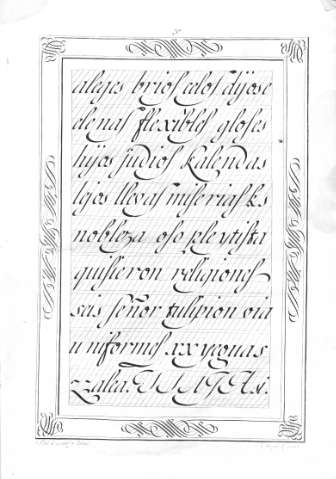 aleges brios celos dijose
elenas flexibles gloses
hijos judios kalendas
lejos llevas miserias ks
nobleza oso pleytista
quisieron religiones
seis señor tulipion via
uniformes xx yeguas
zzalea.